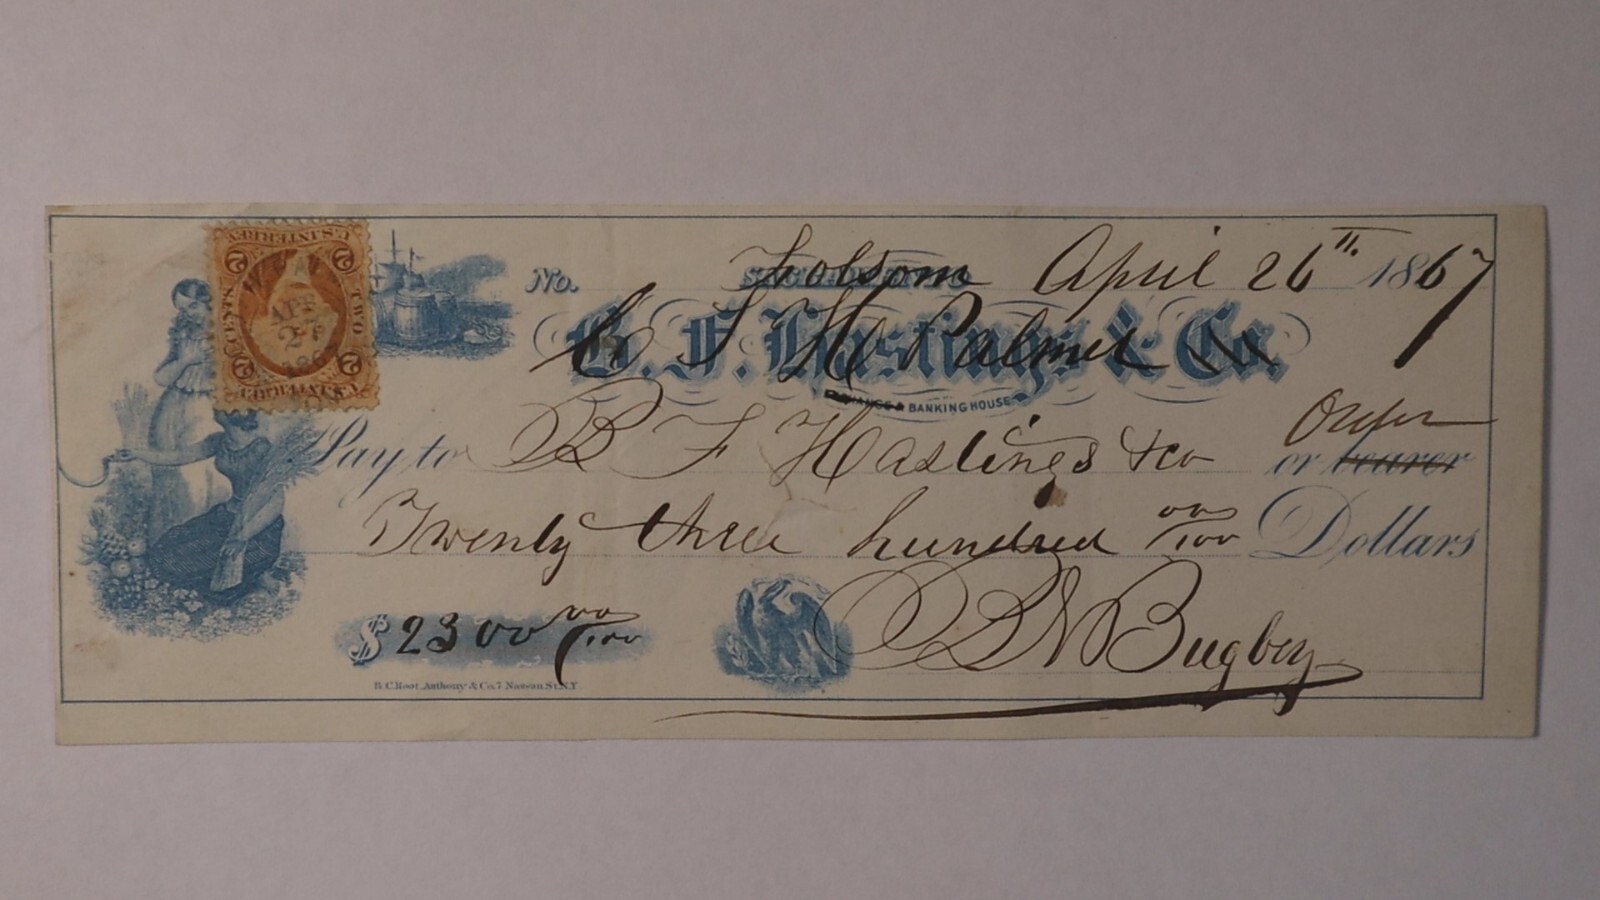 U.S. INTER. REV.
2 2
TWO CENTS
2 2
U.S. INTER. REV.
APR
No. Folsom April 26th. 1867
B. F. Hastings & Co.
Palmer
& BANKING HOUSE
Pay to B F Hastings & co or bearer Order
Twenty three hundred 00/100 Dollars
$ 2300 00/100
Bugbey
B.C. Root, Anthony & Co. 7 Nassau St. N.Y.